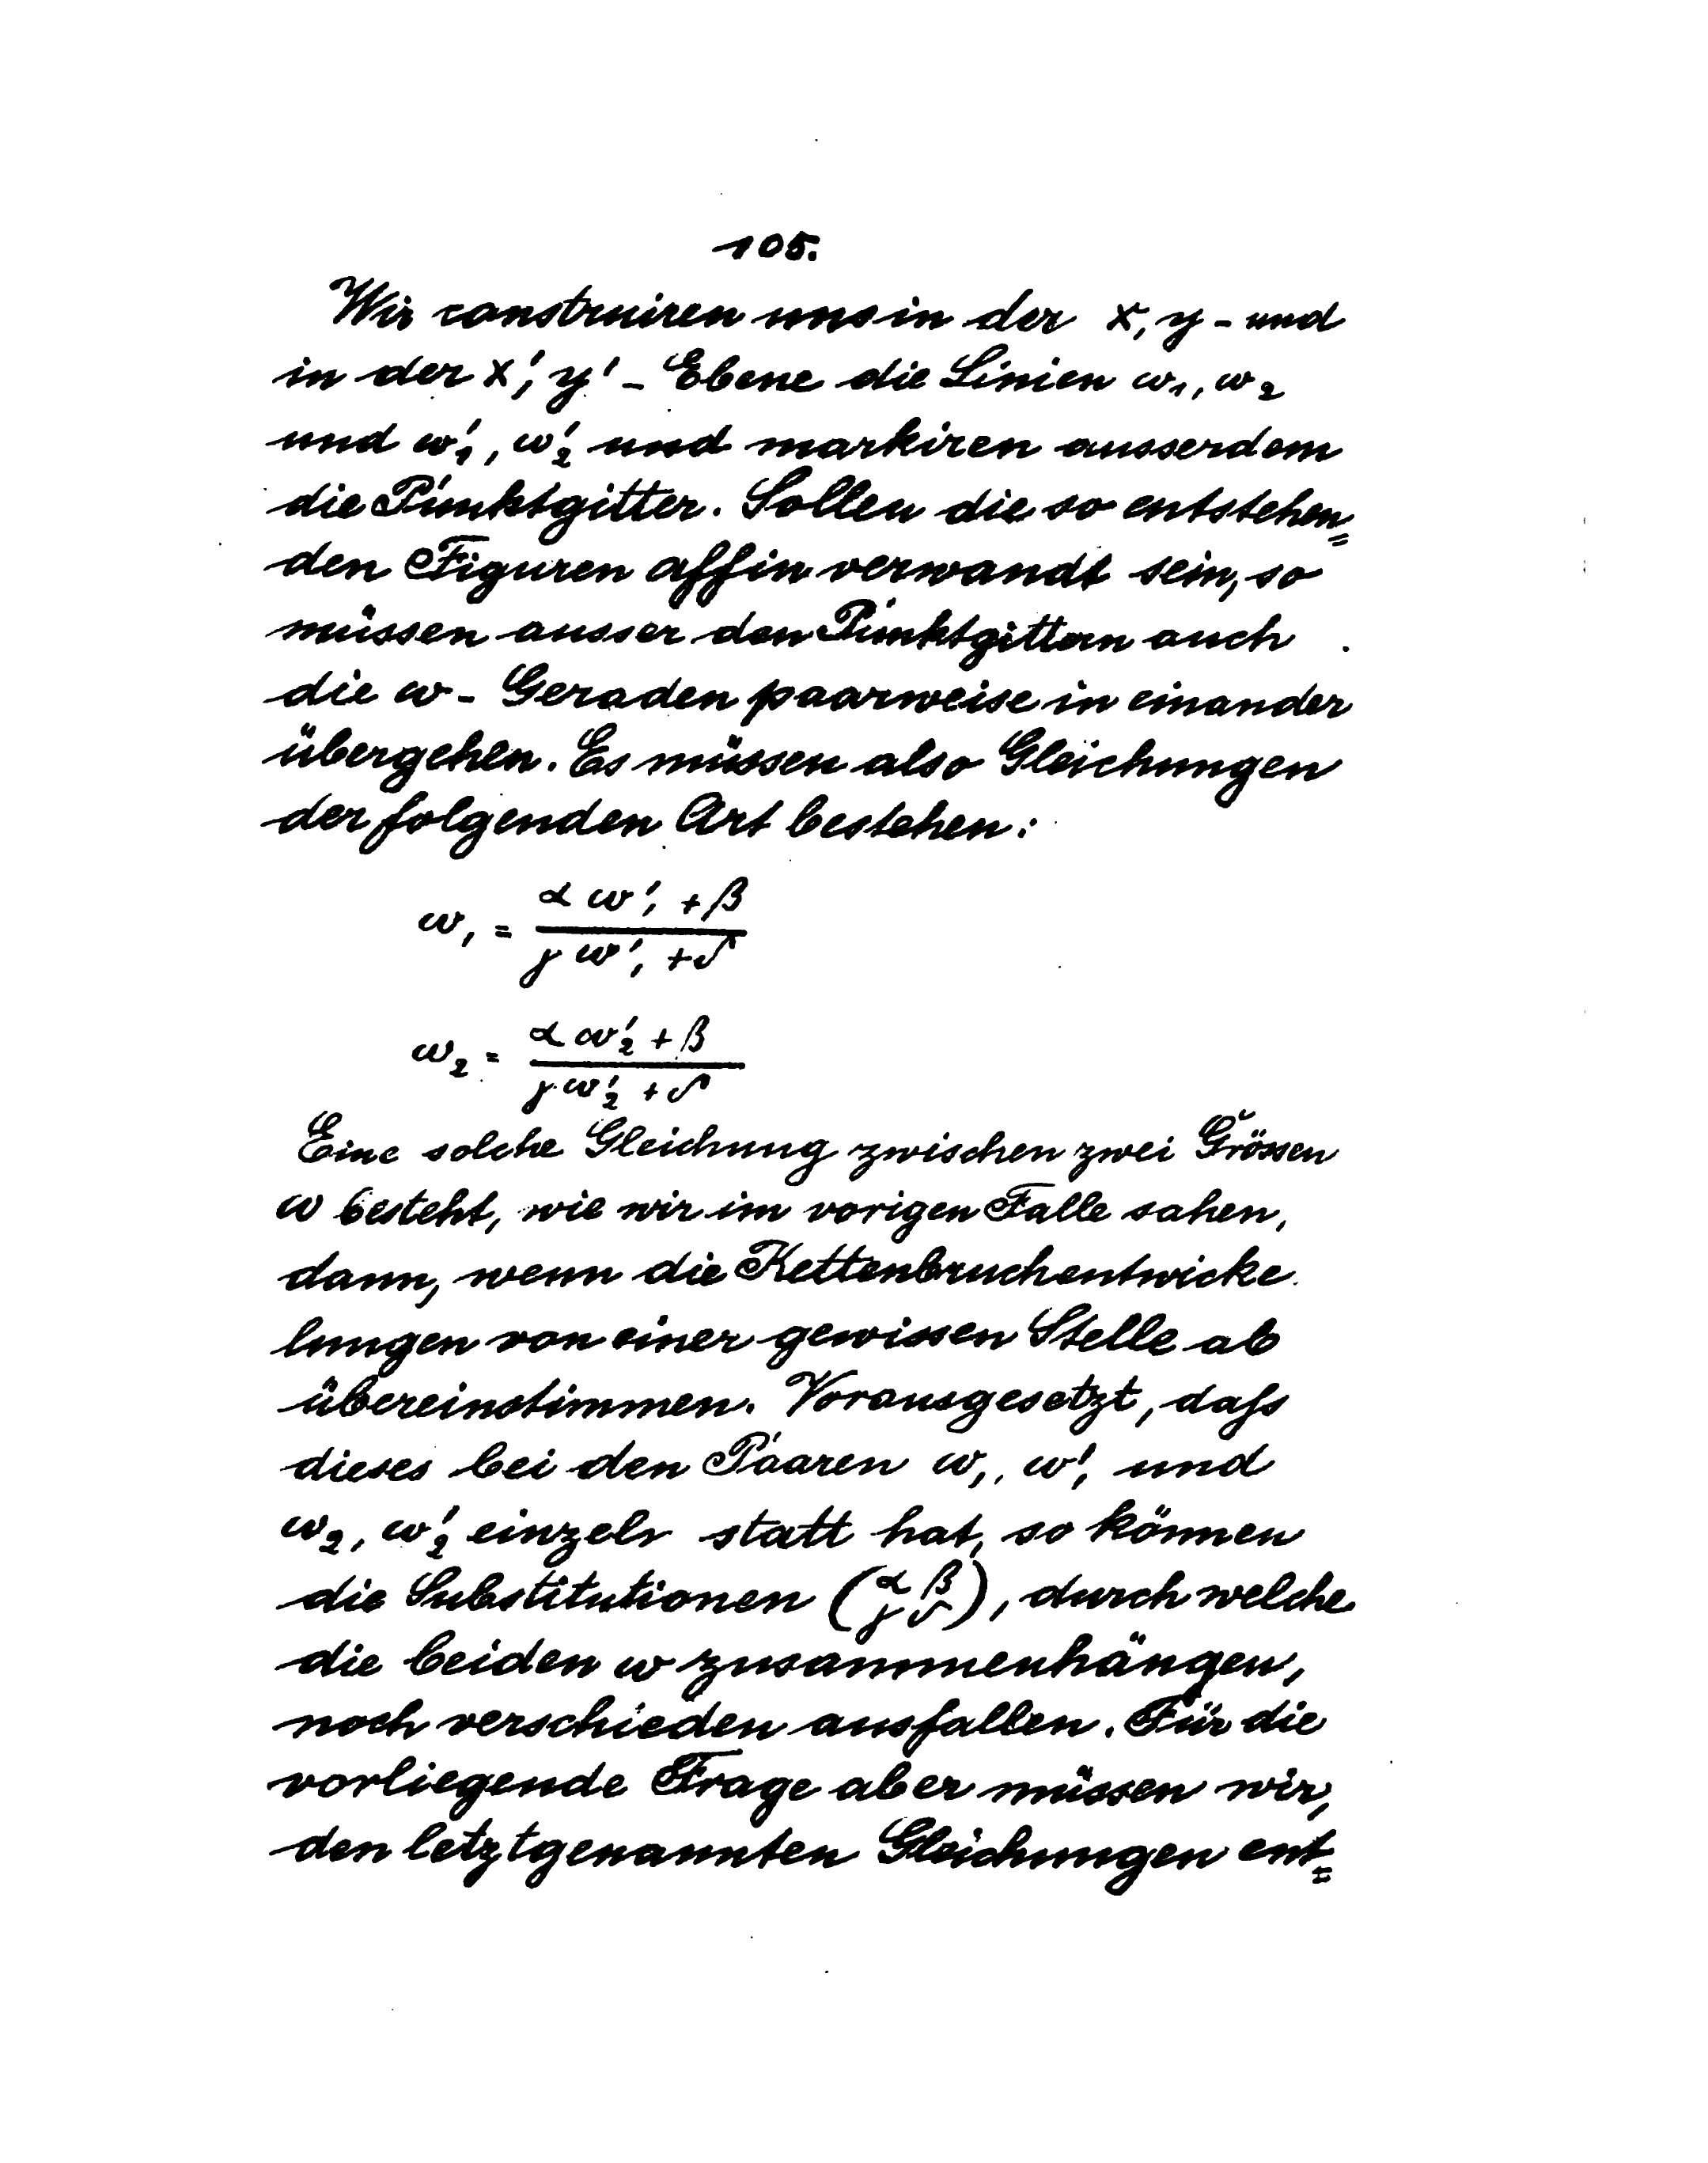 105.
Wir construiren uns in der x, y - und
in der x', y' - Ebene die Linien ω₁, ω₂
und ω'₁, ω'₂ und markiren ausserdem
die Punktgitter. Sollen die so entstehen=
den Figuren affin verwandt sein, so
müssen ausser den Punktgittern auch
die ω - Geraden paarweise in einander
übergehen. Es müssen also Gleichungen
der folgenden Art bestehen:
ω₁ = (α ω'₁ + β) / (γ ω'₁ + δ)
ω₂ = (α ω'₂ + β) / (γ ω'₂ + δ)
Eine solche Gleichung zwischen zwei Grössen
ω besteht, wie wir im vorigen Falle sahen,
dann, wenn die Kettenbruchentwicke
lungen von einer gewissen Stelle ab
übereinstimmen. Vorausgesetzt, daſs
dieses bei den Paaren ω₁, ω'₁ und
ω₂, ω'₂ einzeln statt hat, so können
die Substitutionen (α β / γ δ), durch welche
die beiden ω zusammenhängen,
noch verschieden ausfallen. Für die
vorliegende Frage aber müssen wir,
den letztgenannten Gleichungen ent=